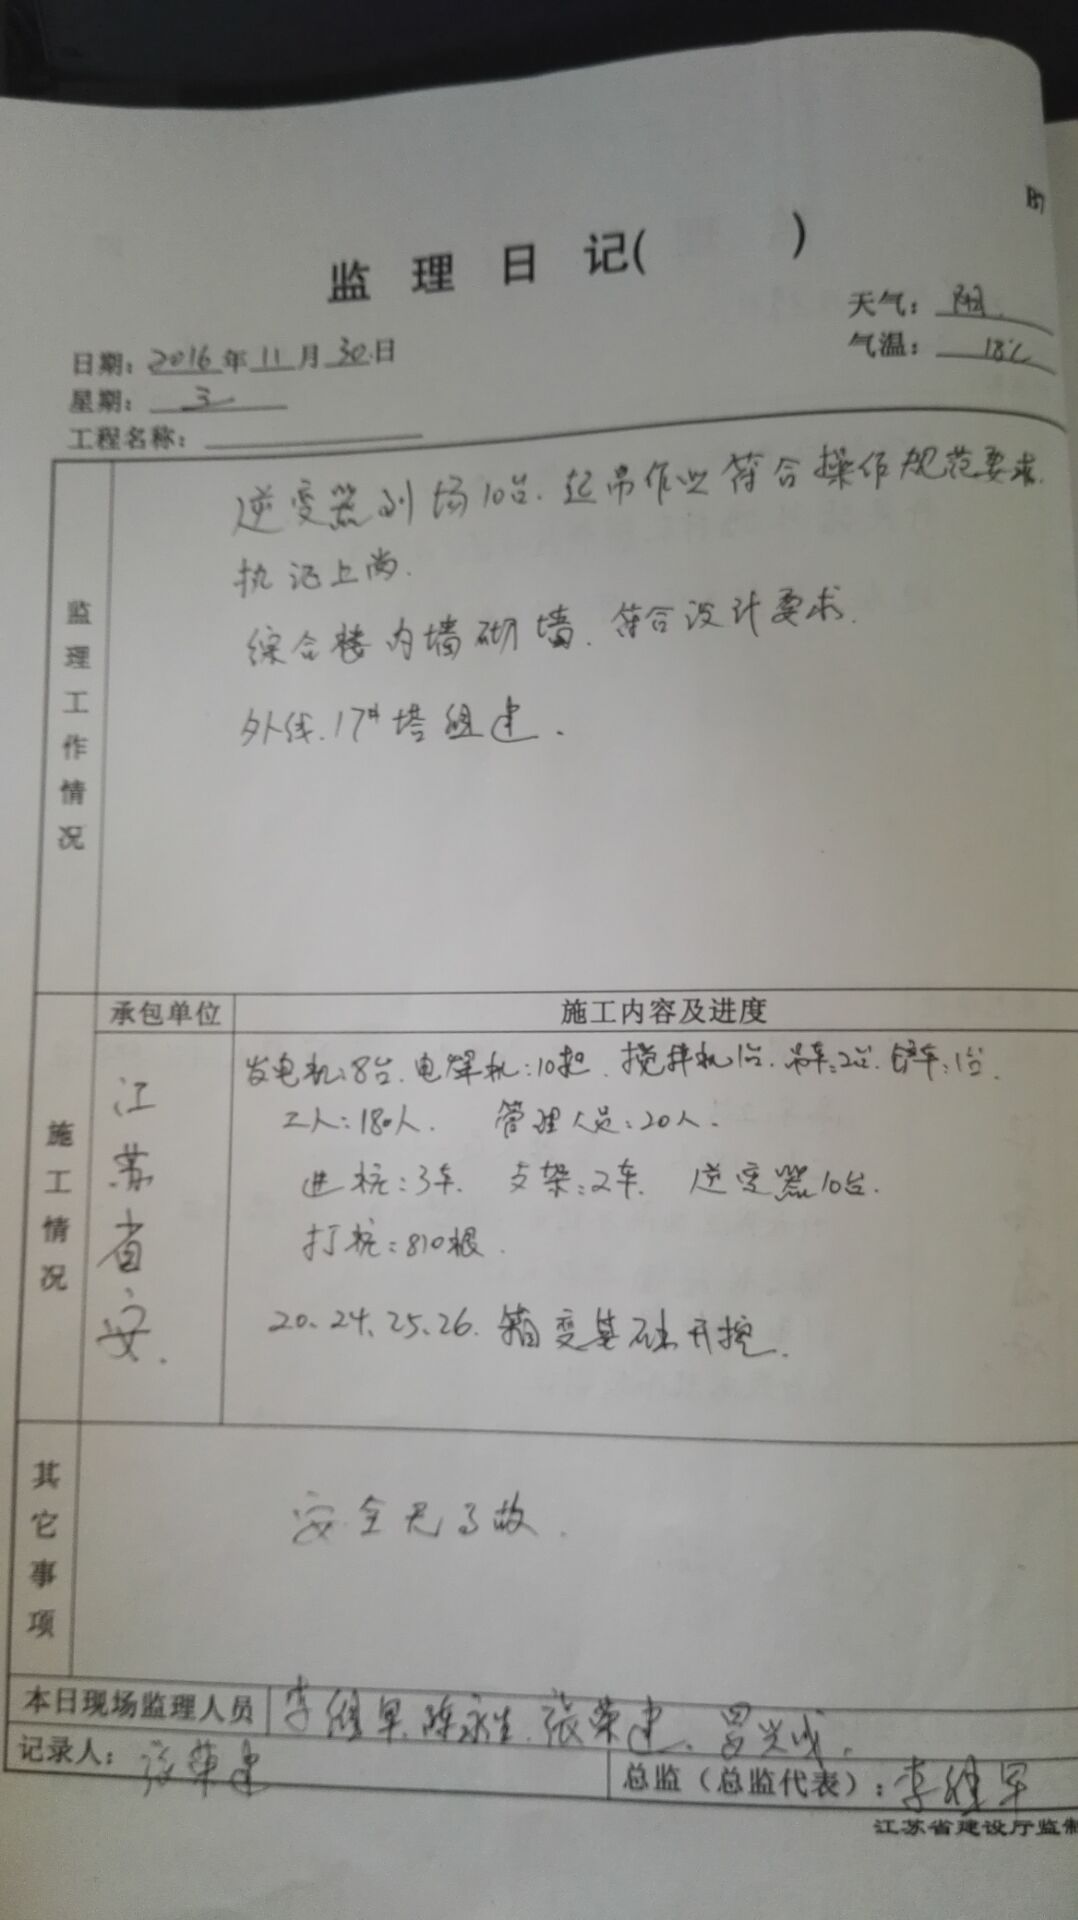 监理日记( )
天气：阴
日期：2016年11月30日
气温：18℃
星期：三
工程名称：
监理工作情况
逆变器到场10台.起吊作业符合操作规范要求.
执证上岗.
综合楼内墙砌墙.符合设计要求.
外线.17#塔组建.
施工情况
承包单位
施工内容及进度
江苏省安.
发电机:8台.电焊机:10把.搅拌机1台.吊车:2台.铲车:1台.
工人:180人. 管理人员:20人.
进桩:3车. 支架:2车. 逆变器10台.
打桩:810根.
20、24、25、26.箱变基础开挖.
其它事项
安全无事故.
本日现场监理人员
李继军.陈永生.张荣建、
记录人：张荣建
总监（总监代表）：李继军
江苏省建设厅监制